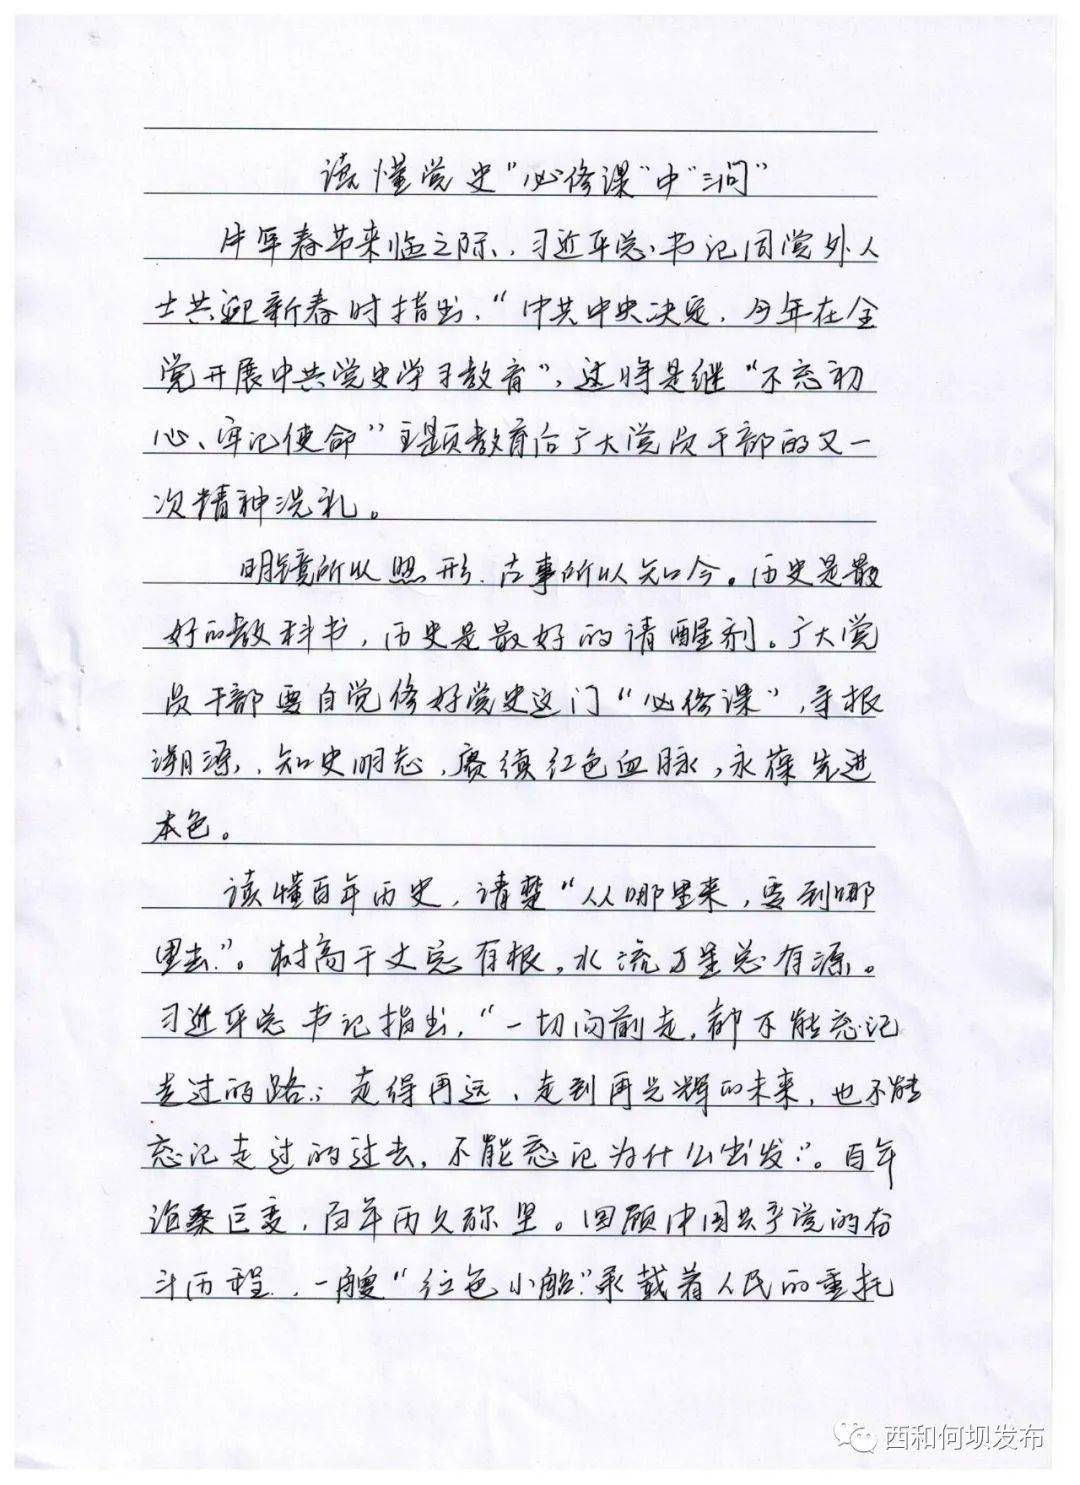 读懂党史“必修课”中“三问”
牛年春节来临之际，习近平总书记同党外人
士共迎新春时指出，“中共中央决定，今年在全
党开展中共党史学习教育”，这将是继“不忘初
心、牢记使命”主题教育后广大党员干部的又一
次精神洗礼。
明镜所以照形，古事所以知今。历史是最
好的教科书，历史是最好的清醒剂。广大党
员干部要自觉修好党史这门“必修课”，寻根
溯源，知史明志，赓续红色血脉，永葆先进
本色。
读懂百年历史，请楚“从哪里来，要到哪
里去”。树高千丈总有根，水流万里总有源。
习近平总书记指出，“一切向前走，都不能忘记
走过的路；走得再远、走到再光辉的未来，也不能
忘记走过的过去，不能忘记为什么出发”。百年
沧桑巨变，百年历久弥坚。回顾中国共产党的奋
斗历程，一艘“红色小船”承载着人民的重托
西和何坝发布